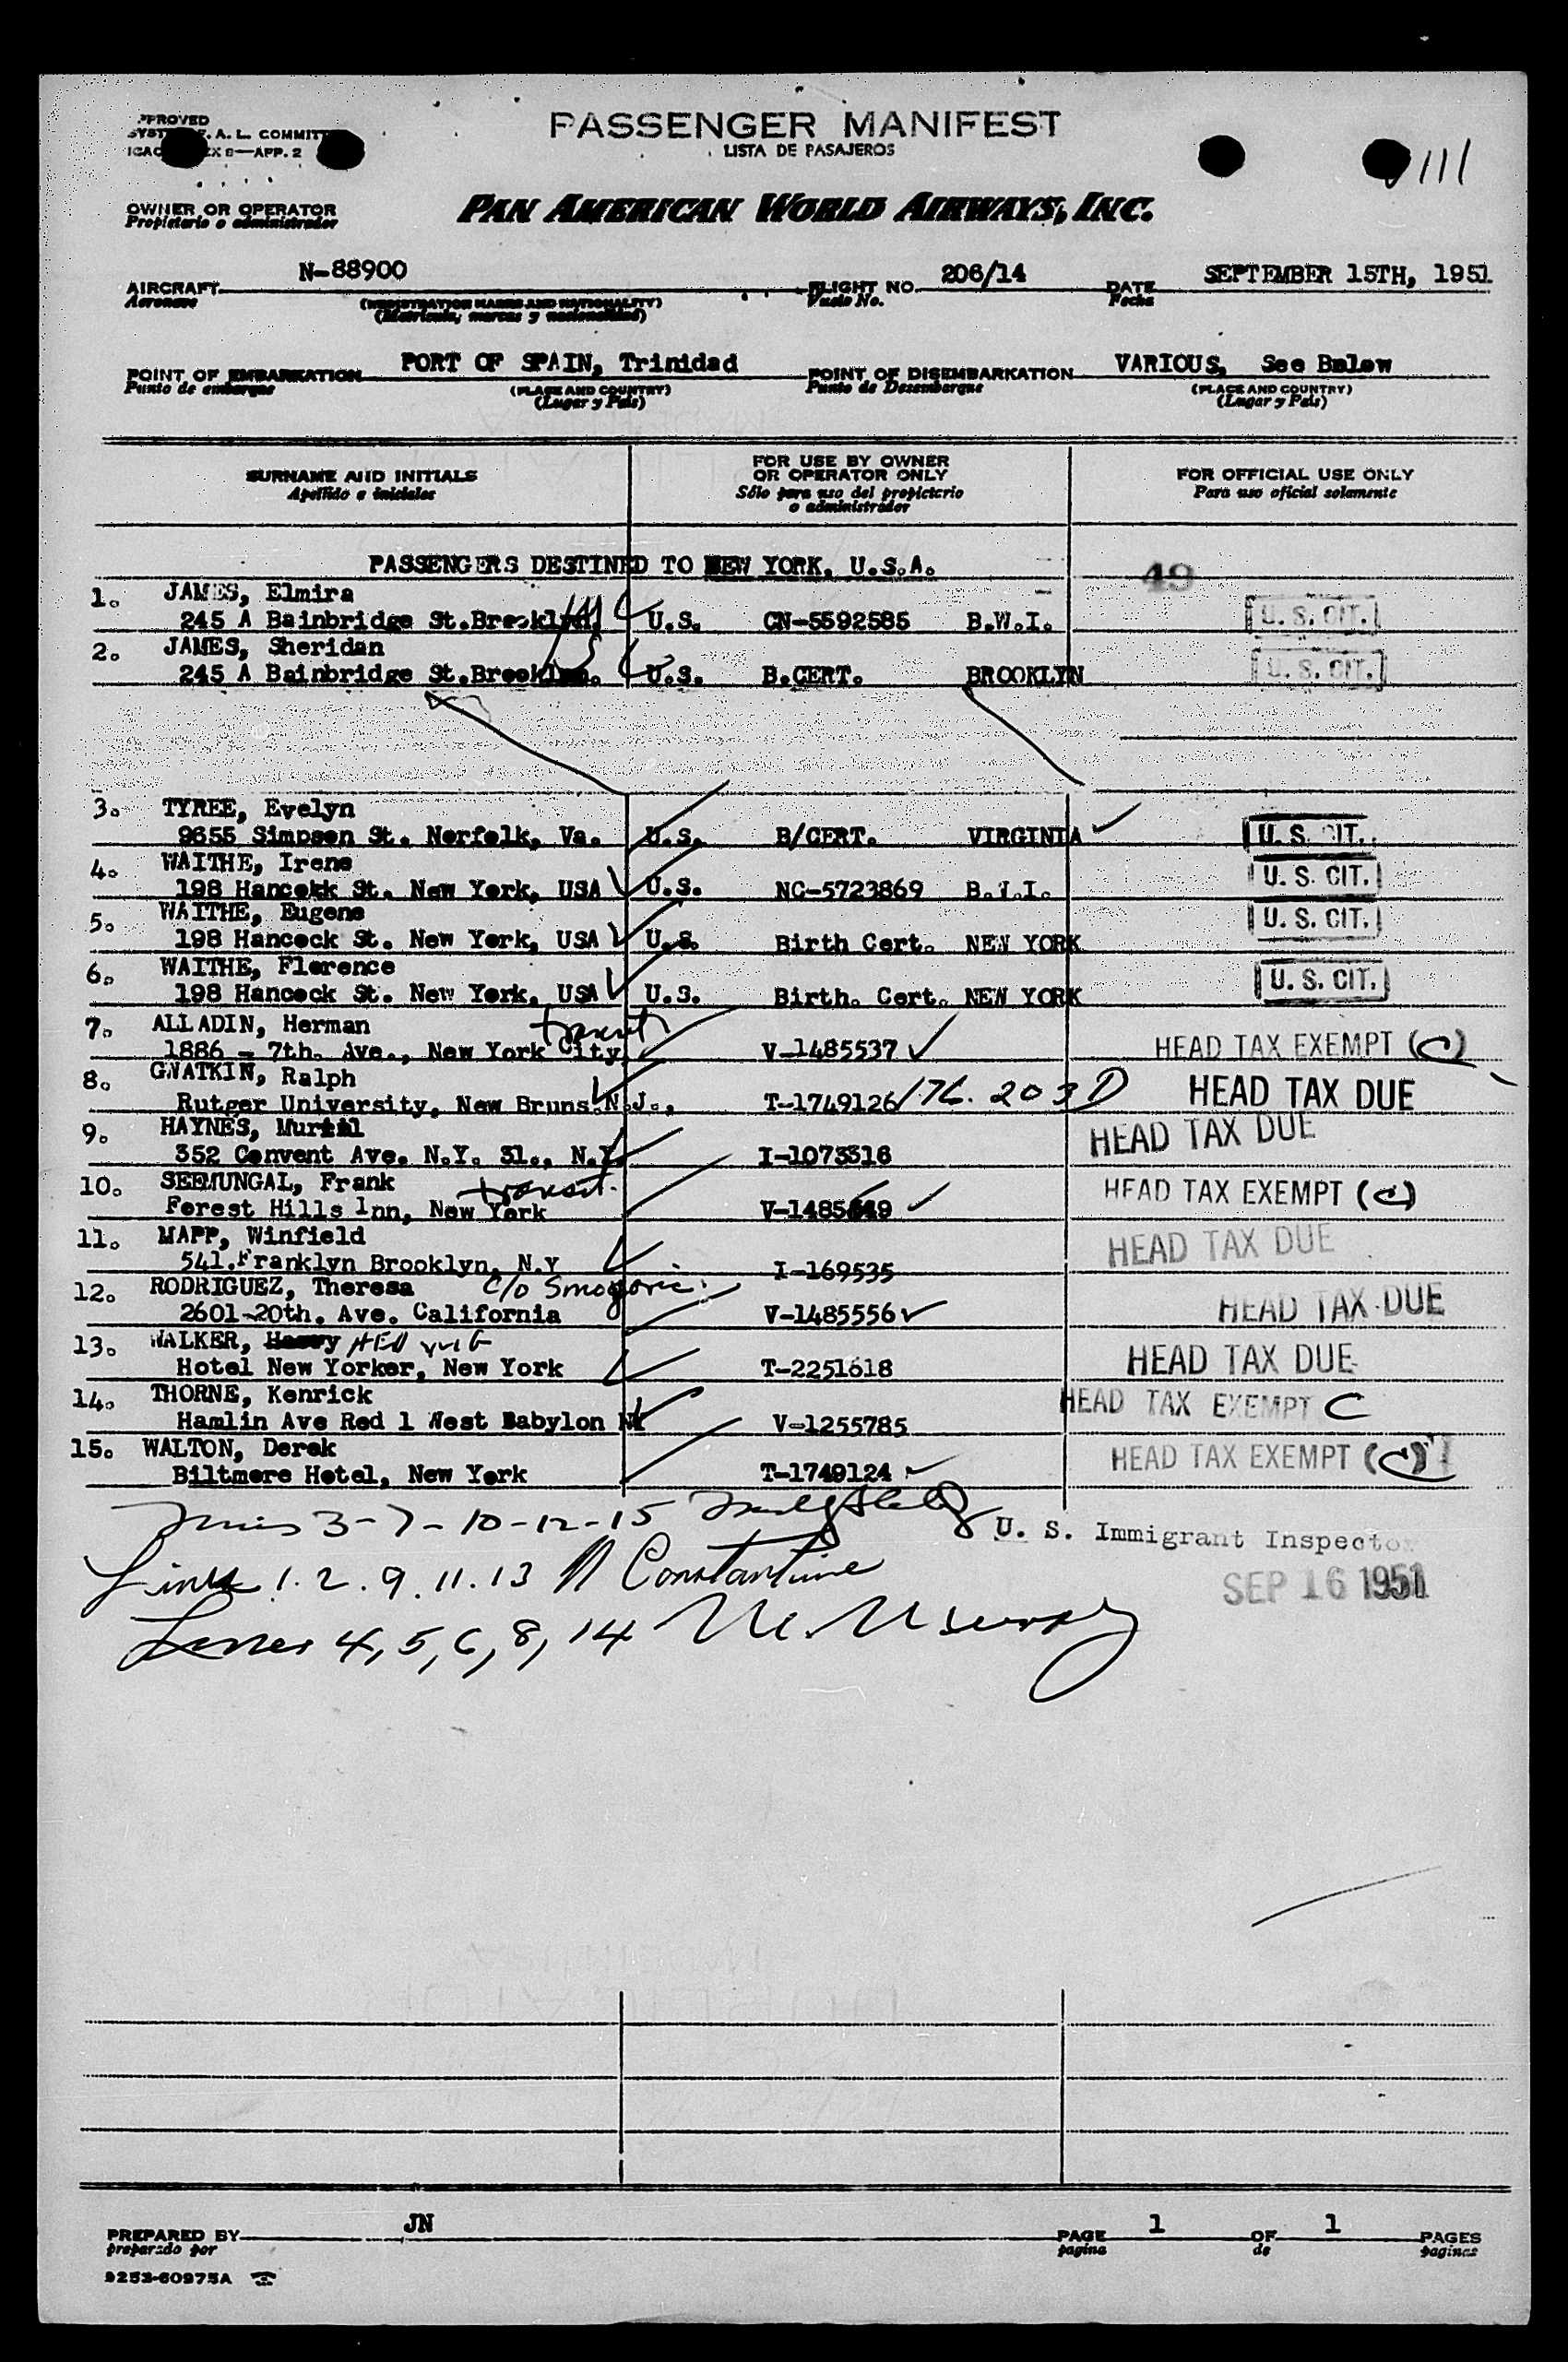 PASSENGER MANIFEST
LISTA DE PASAJEROS
111
OWNER OR OPERATOR
Propietario o administrador
PAN AMERICAN WORLD AIRWAYS, INC.
AIRCRAFT N-88900 FLIGHT NO. 206/14 DATE SEPTEMBER 15TH, 1951
Aeronave (REGISTRATION MARKS AND NATIONALITY) Vuelo No. Fecha
(Matricula, marcas y nacionalidad)
POINT OF EMBARKATION PORT OF SPAIN, Trinidad POINT OF DISEMBARKATION VARIOUS, See Below
Punto de embarque (PLACE AND COUNTRY) Punto de Desembarque (PLACE AND COUNTRY)
(Lugar y Pais) (Lugar y Pais)
SURNAME AND INITIALS FOR USE BY OWNER OR OPERATOR ONLY FOR OFFICIAL USE ONLY
Apellido e iniciales Sólo para uso del propietario o administrador Para uso oficial solamente
PASSENGERS DESTINED TO NEW YORK, U.S.A. 49
1. JAMES, Elmira
245 A Bainbridge St.Brooklyn. U.S. CN-5592585 B.W.I. U. S. CIT.
2. JAMES, Sheridan
245 A Bainbridge St.Brooklyn. U.S. B.CERT. BROOKLYN U. S. CIT.
3. TYREE, Evelyn
9655 Simpson St. Norfolk, Va. U.S. B/CERT. VIRGINIA U. S. CIT.
4. WAITHE, Irene
198 Hancokk St. New York, USA U.S. NC-5723869 B.W.I. U. S. CIT.
5. WAITHE, Eugene
198 Hancock St. New York, USA U.S. Birth Cert. NEW YORK U. S. CIT.
6. WAITHE, Florence
198 Hancock St. New York, USA U.S. Birth. Cert. NEW YORK U. S. CIT.
7. ALLADIN, Herman transit
1886 - 7th. Ave., New York City, V-1485537 HEAD TAX EXEMPT (C)
8. GWATKIN, Ralph
Rutger University, New Bruns.N.J., T-1749126 176.203 D HEAD TAX DUE
9. HAYNES,
352 Convent Ave. N.Y. 31., N.Y. I-1073316 HEAD TAX DUE
10. SEEMUNGAL, Frank transit.
Forest Hills Inn, New York HEAD TAX EXEMPT (C)
11. MAPP, Winfield
541.Franklyn Brooklyn, N.Y I-169535 HEAD TAX DUE
12. RODRIGUEZ, Theresa c/o
2601-20th. Ave. California V-1485556 HEAD TAX DUE
13. WALKER,
Hotel New Yorker, New York T-2251618 HEAD TAX DUE
14. THORNE, Kenrick
Hamlin Ave Red 1 West Babylon NY V-1255785 HEAD TAX EXEMPT C
15. WALTON, Derek
Biltmore Hotel, New York T-1749124 HEAD TAX EXEMPT (C)
3-7-10-12-15
U. S. Immigrant Inspector
Lines 1.2.9.11.13 N Constantine
SEP 16 1951
Lines 4,5,6,8,14
PREPARED BY JN PAGE 1 OF 1 PAGES
preparado por pagina de paginas
9253-60975A